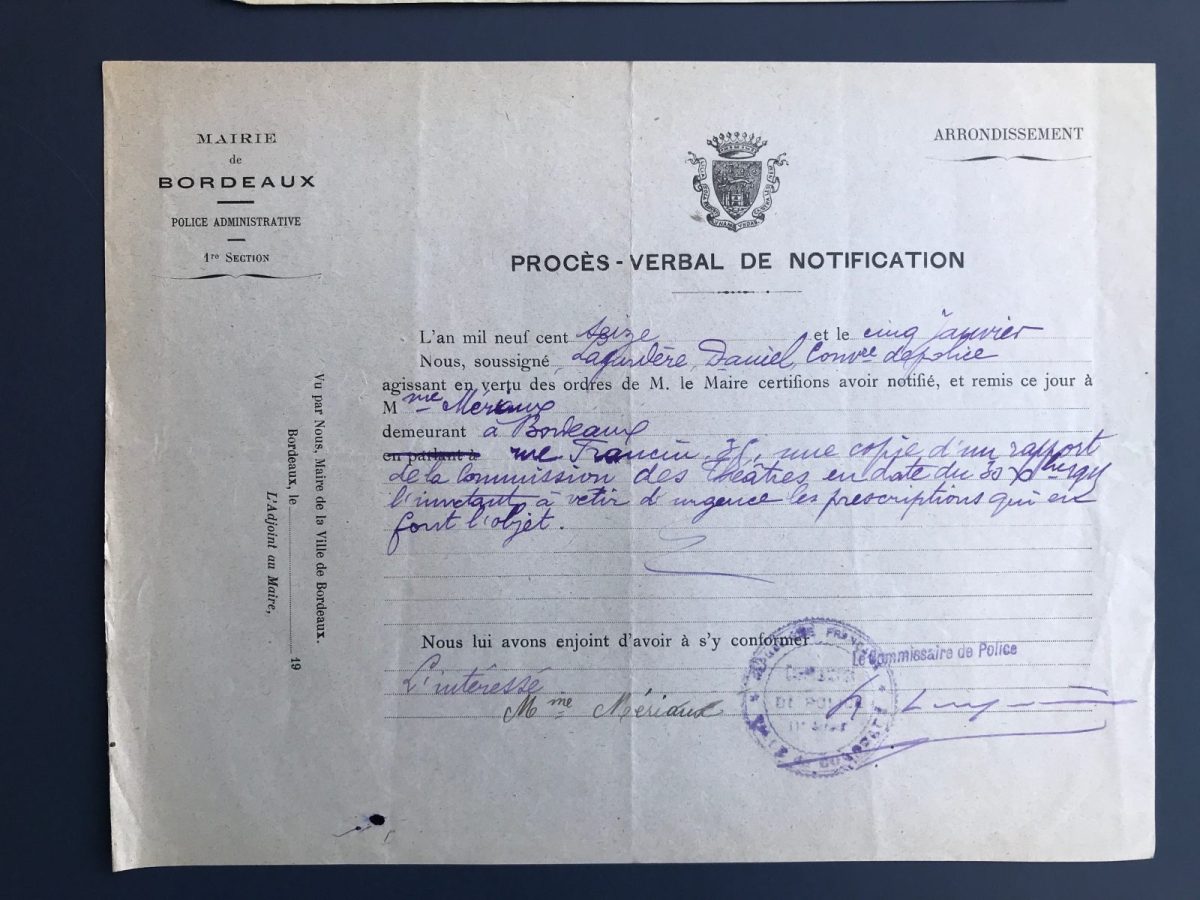 MAIRIE
de
BORDEAUX
POLICE ADMINISTRATIVE
1re SECTION
ARRONDISSEMENT
PROCÈS-VERBAL DE NOTIFICATION
L'an mil neuf cent Seize et le cinq Janvier
Nous, soussigné Daniel, Comre de police
agissant en vertu des ordres de M. le Maire certifions avoir notifié, et remis ce jour à
Mme Mériaux
demeurant à Bordeaux
en parlant à rue Francin, 35, une copie d'un rapport
de la Commission des Théâtres en date du 30
l'invitant à vétir d'urgence les prescriptions qui en
font l'objet.
Nous lui avons enjoint d'avoir à s'y conformer
L'intéressé
Mme Mériaux
Le Commissaire de Police
Vu par Nous, Maire de la Ville de Bordeaux.
Bordeaux, le 19
L'Adjoint au Maire,